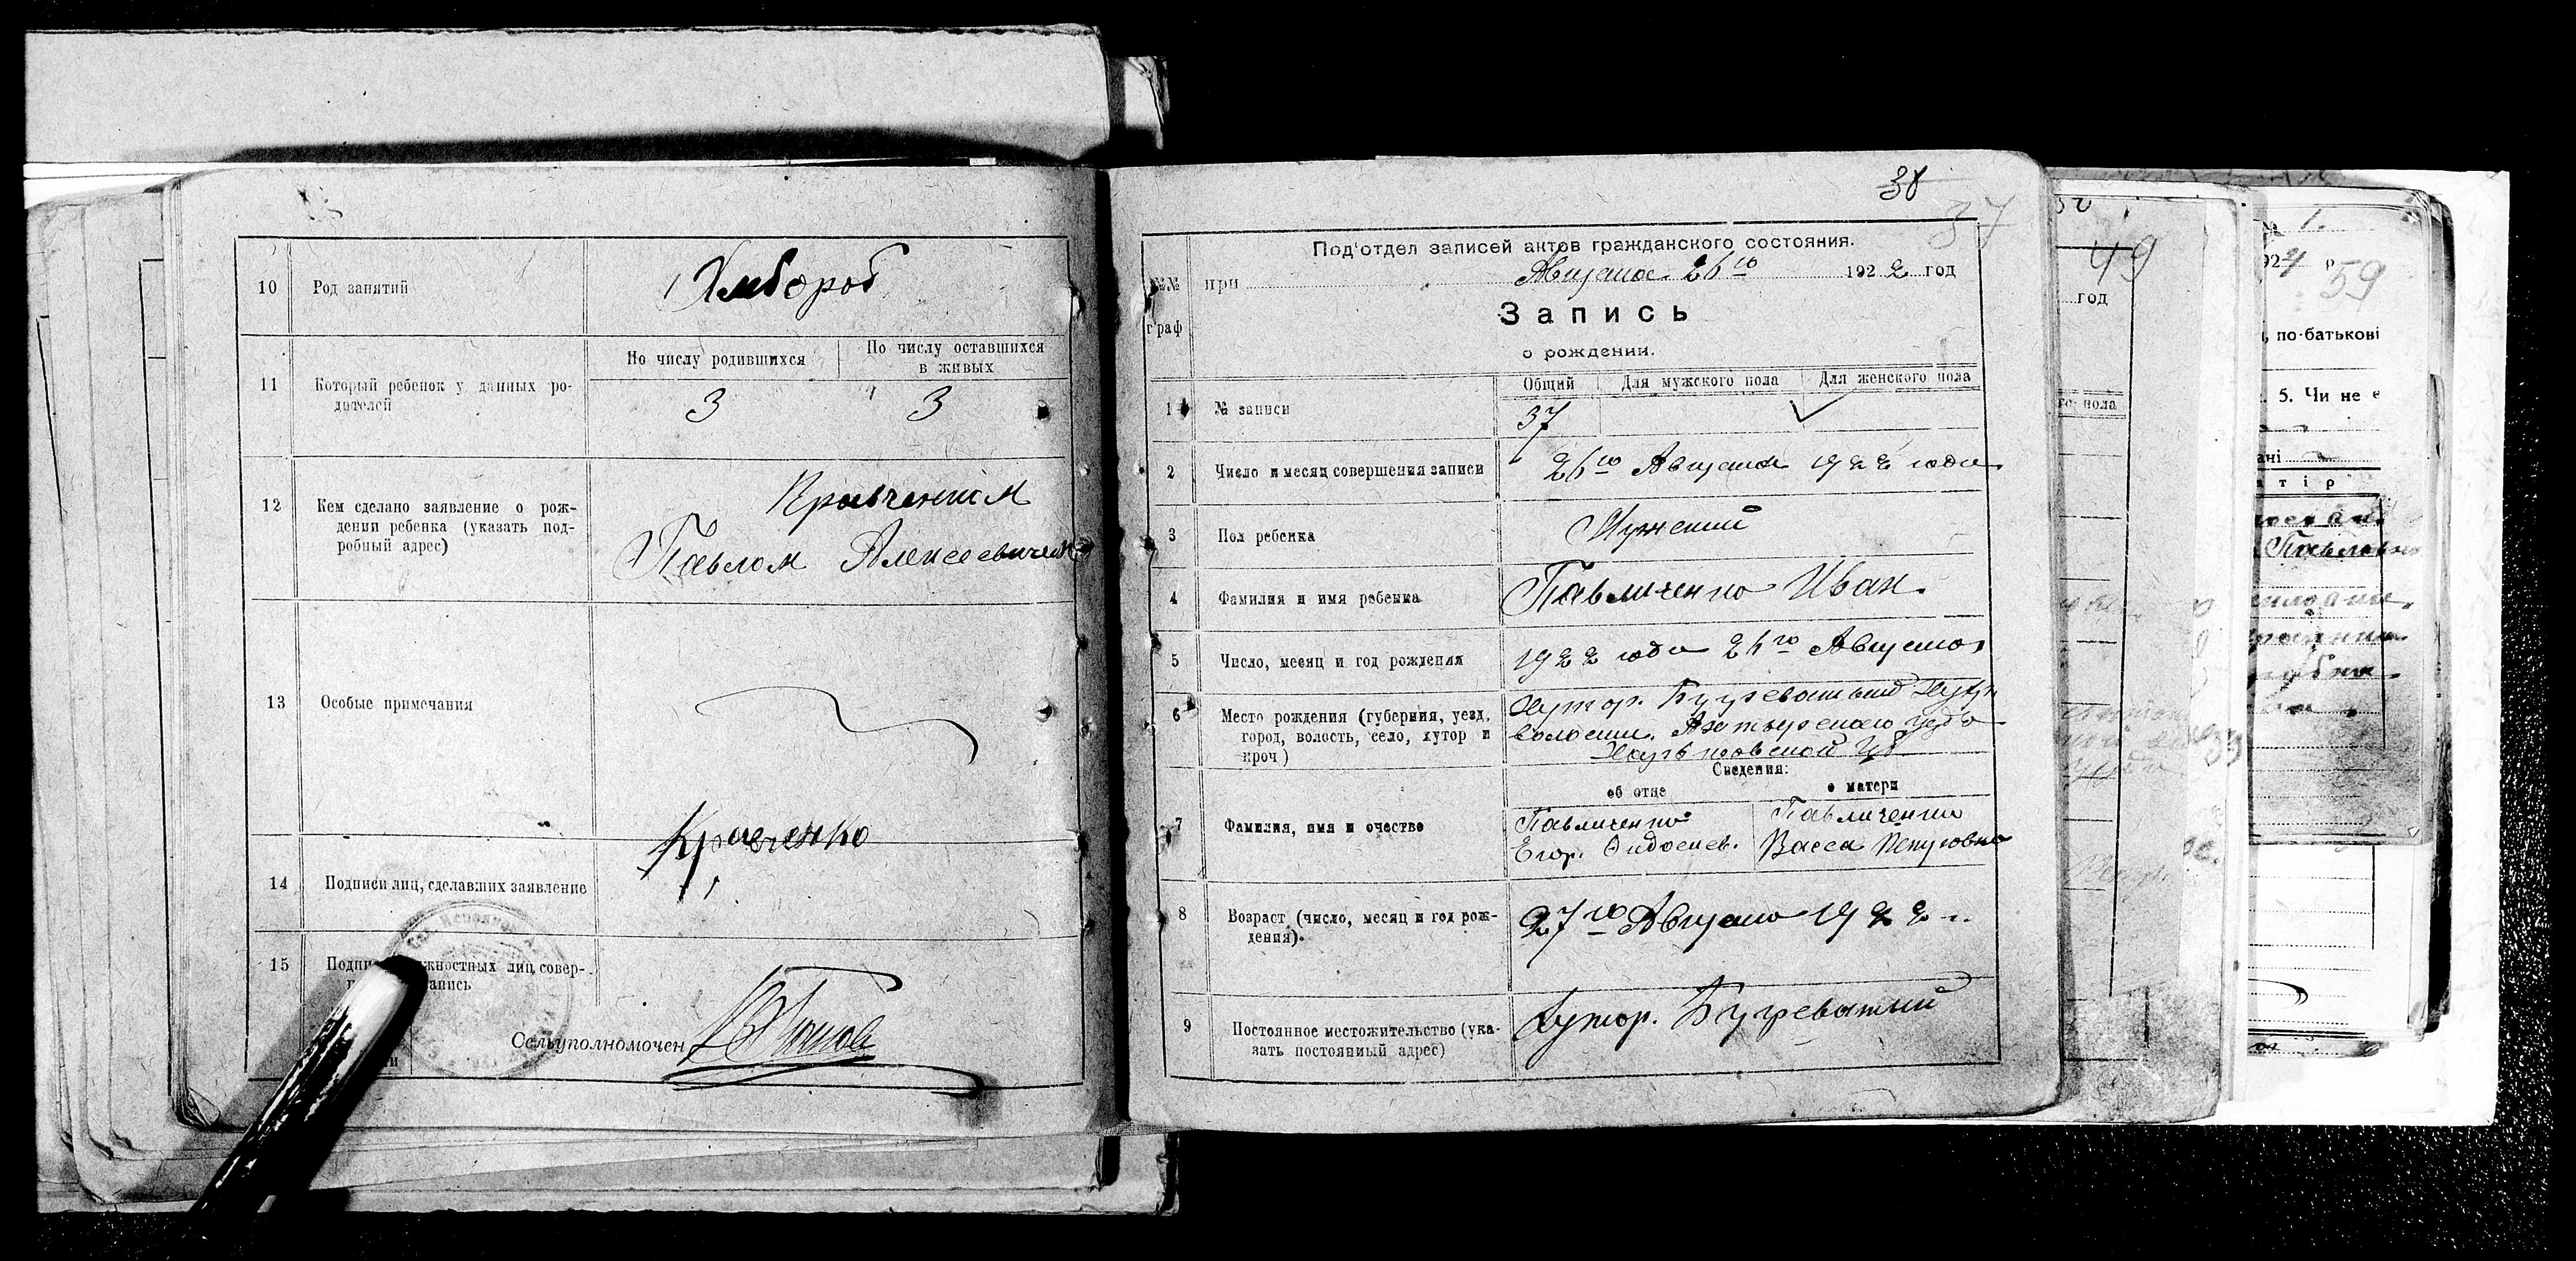 10 Род занятий Хлебороб
11 Который ребенок у данных ро-
дителей
По числу родившихся
По числу оставшихся
в живых
3 3
12 Кем сделано заявление о рож-
дении ребенка (указать под-
робный адрес)
Кравченком
Павлом Алексеевичем
13 Особые примечания
Кравченко
14 Подписи лиц, сделавших заявление
15
Сельуполномочен
38
37
Под'отдел записей актов гражданского состояния.
№№ при Августа 26го 1922 год
граф
Запись
о рождении.
Общий Для мужского пола Для женского пола
1 № записи 37
2 Число и месяц совершения записи 26го Августа 1922 года
3 Пол ребенка Мужский
4 Фамилия и имя ребенка Павличенко Иван.
5 Число, месяц и год рождения 1922 года 26го Августа
6 Место рождения (губерния, уезд,
город, волость, село, хутор и
проч)
Хутор. Бугреватый
волости.
Сведения:
об отце о матери
7 Фамилия, имя и очество
Павличенко Павличенко
Егор. Васса
8 Возраст (число, месяц и год рож-
дения).
27го Августа 1922 г.
9 Постоянное местожительство (ука-
зать постоянный адрес)
Хутор. Бугреватый
49
год
1.
59
, по-батькові
5. Чи не є